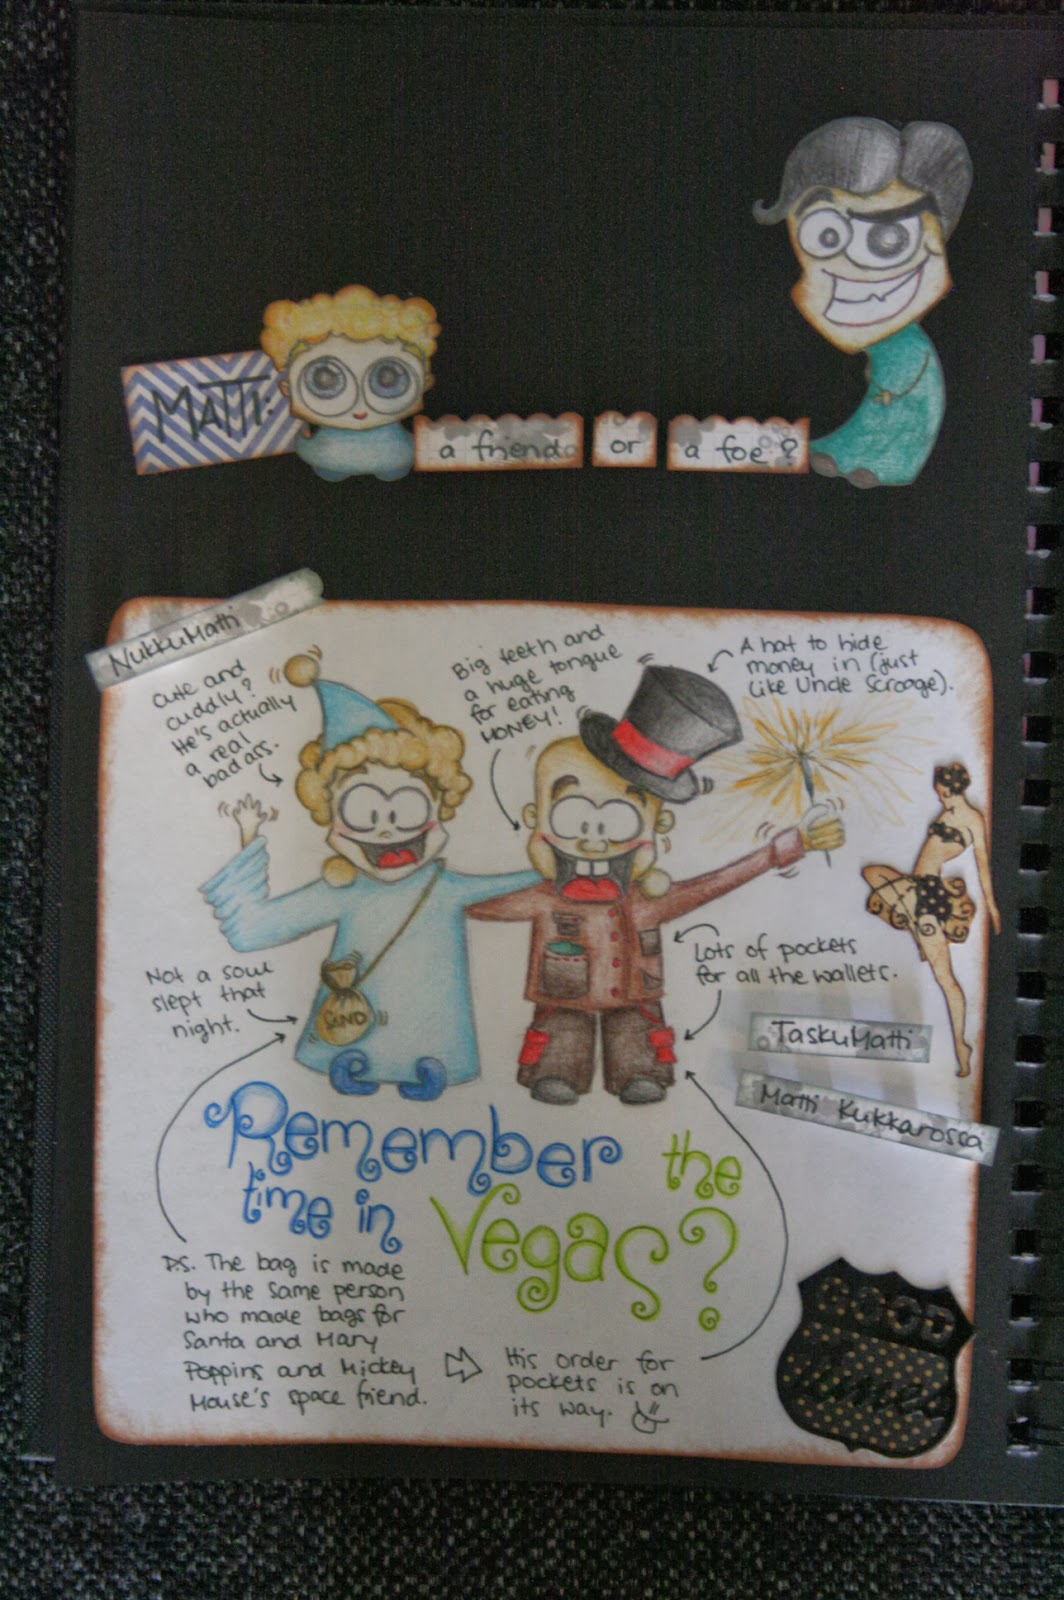 MATTI:
a friend or a foe?
NukkuMatti
Cute and
cuddly?
He's actually
a real
badass.
Big teeth and
a huge tongue
for eating
MONEY!
A hat to hide
money in (just
like Uncle Scrooge).
SAND
Not a soul
slept that
night.
Lots of pockets
for all the wallets.
TaskuMatti
Matti Kukkarossa
Remember the
time in Vegas?
P.S. The bag is made
by the same person
who made bags for
Santa and Mary
Poppins and Mickey
Mouse's space friend.
His order for
pockets is on
its way.
GOOD
times